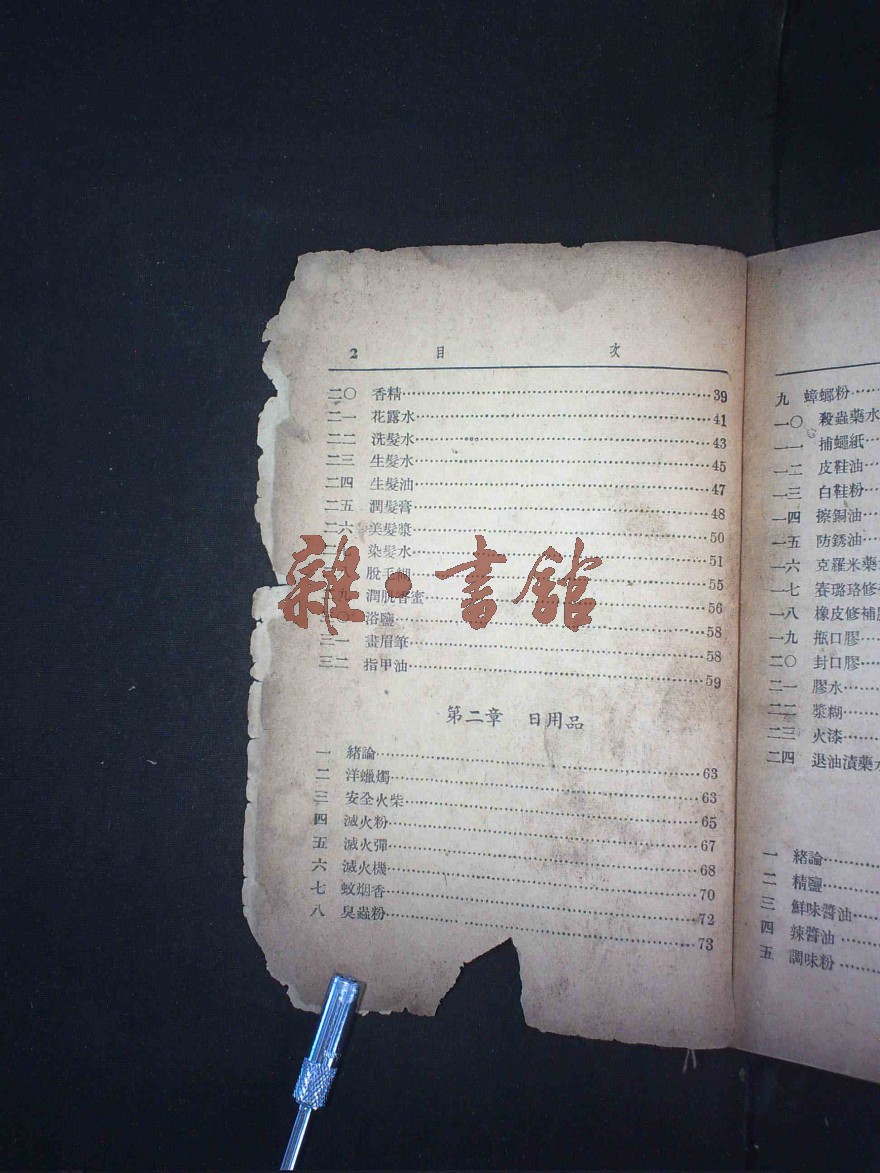 2 目 次
二〇 香精……39
二一 花露水……41
二二 洗髮水……43
二三 生髮水……45
二四 生髮油……47
二五 潤髮膏……48
二六 美髮漿……50
二 染髮水……51
脫毛糊……55
九 潤肌香蜜……56
〇 浴鹽……58
三一 畫眉筆……58
三二 指甲油……59
第二章 日用品
一 緒論……63
二 洋蠟燭……63
三 安全火柴……65
四 滅火粉……67
五 滅火彈……68
六 滅火機……70
七 蚊烟香……72
八 臭蟲粉……73
九 蟑螂粉……
一〇 殺蟲藥水
一一 捕蠅紙……
一二 皮鞋油……
一三 白鞋粉……
一四 擦銅油……
一五 防銹油……
一六 克羅米藥
一七 賽璐珞修
一八 橡皮修補
一九 瓶口膠……
二〇 封口膠……
二一 膠水……
二二 漿糊……
二三 火漆……
二四 退油漬藥水
一 緒論……
二 精鹽……
三 鮮味醬油……
四 辣醬油……
五 調味粉……
雜·書館